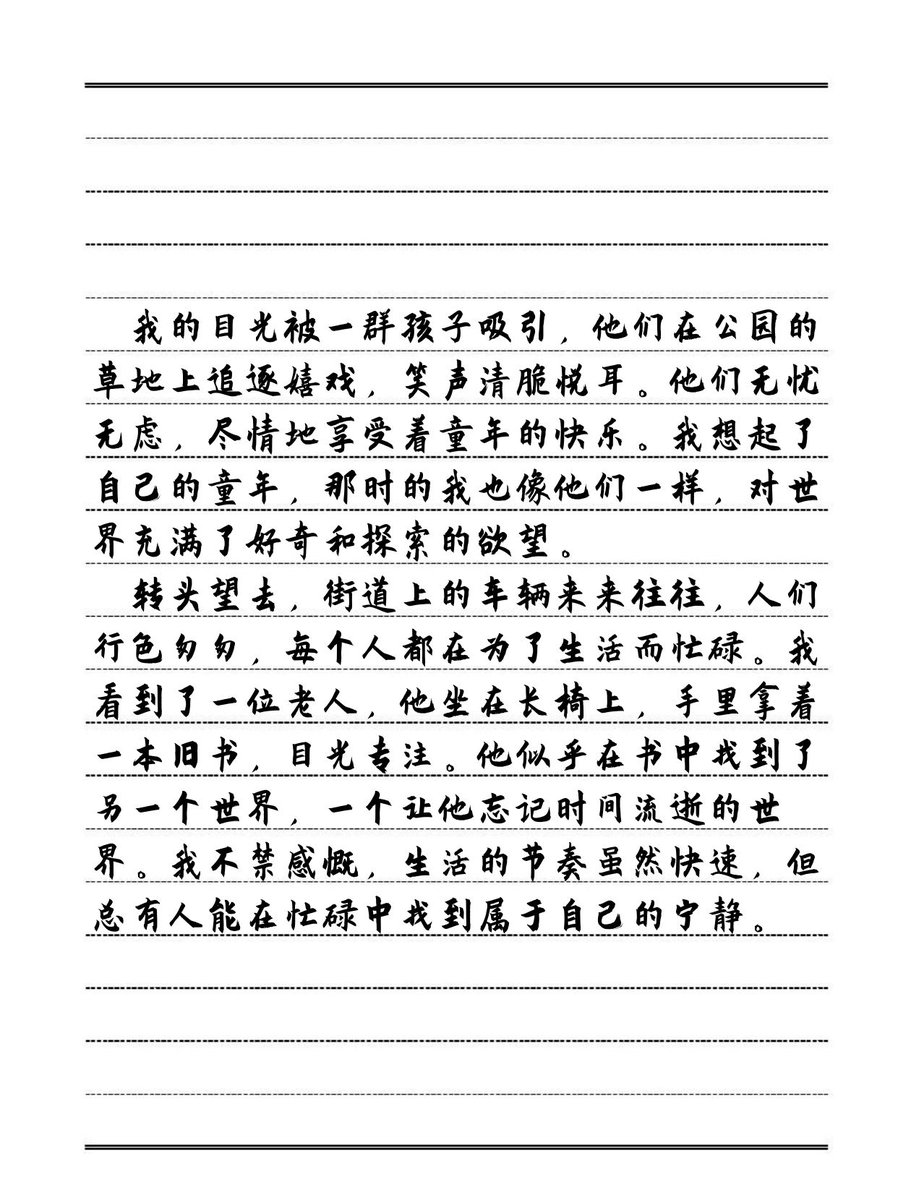 我的目光被一群孩子吸引，他们在公园的
草地上追逐嬉戏，笑声清脆悦耳。他们无忧
无虑，尽情地享受着童年的快乐。我想起了
自己的童年，那时的我也像他们一样，对世
界充满了好奇和探索的欲望。
转头望去，街道上的车辆来来往往，人们
行色匆匆，每个人都在为了生活而忙碌。我
看到了一位老人，他坐在长椅上，手里拿着
一本旧书，目光专注。他似乎在书中找到了
另一个世界，一个让他忘记时间流逝的世
界。我不禁感慨，生活的节奏虽然快速，但
总有人能在忙碌中找到属于自己的宁静。